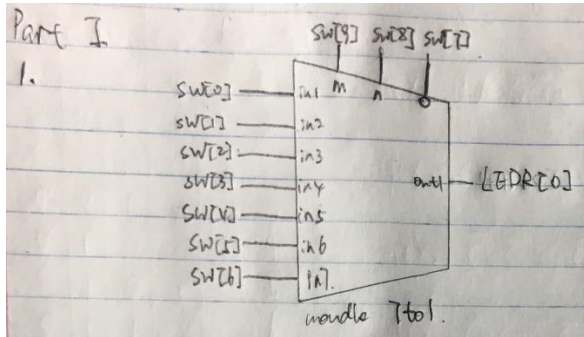 Part I
1.
SW[9] SW[8] SW[7]
m n o
SW[0] in1
SW[1] in2
SW[2] in3
SW[3] in4
SW[4] in5
SW[5] in6
SW[6] in7.
out1 LEDR[0]
7to1.